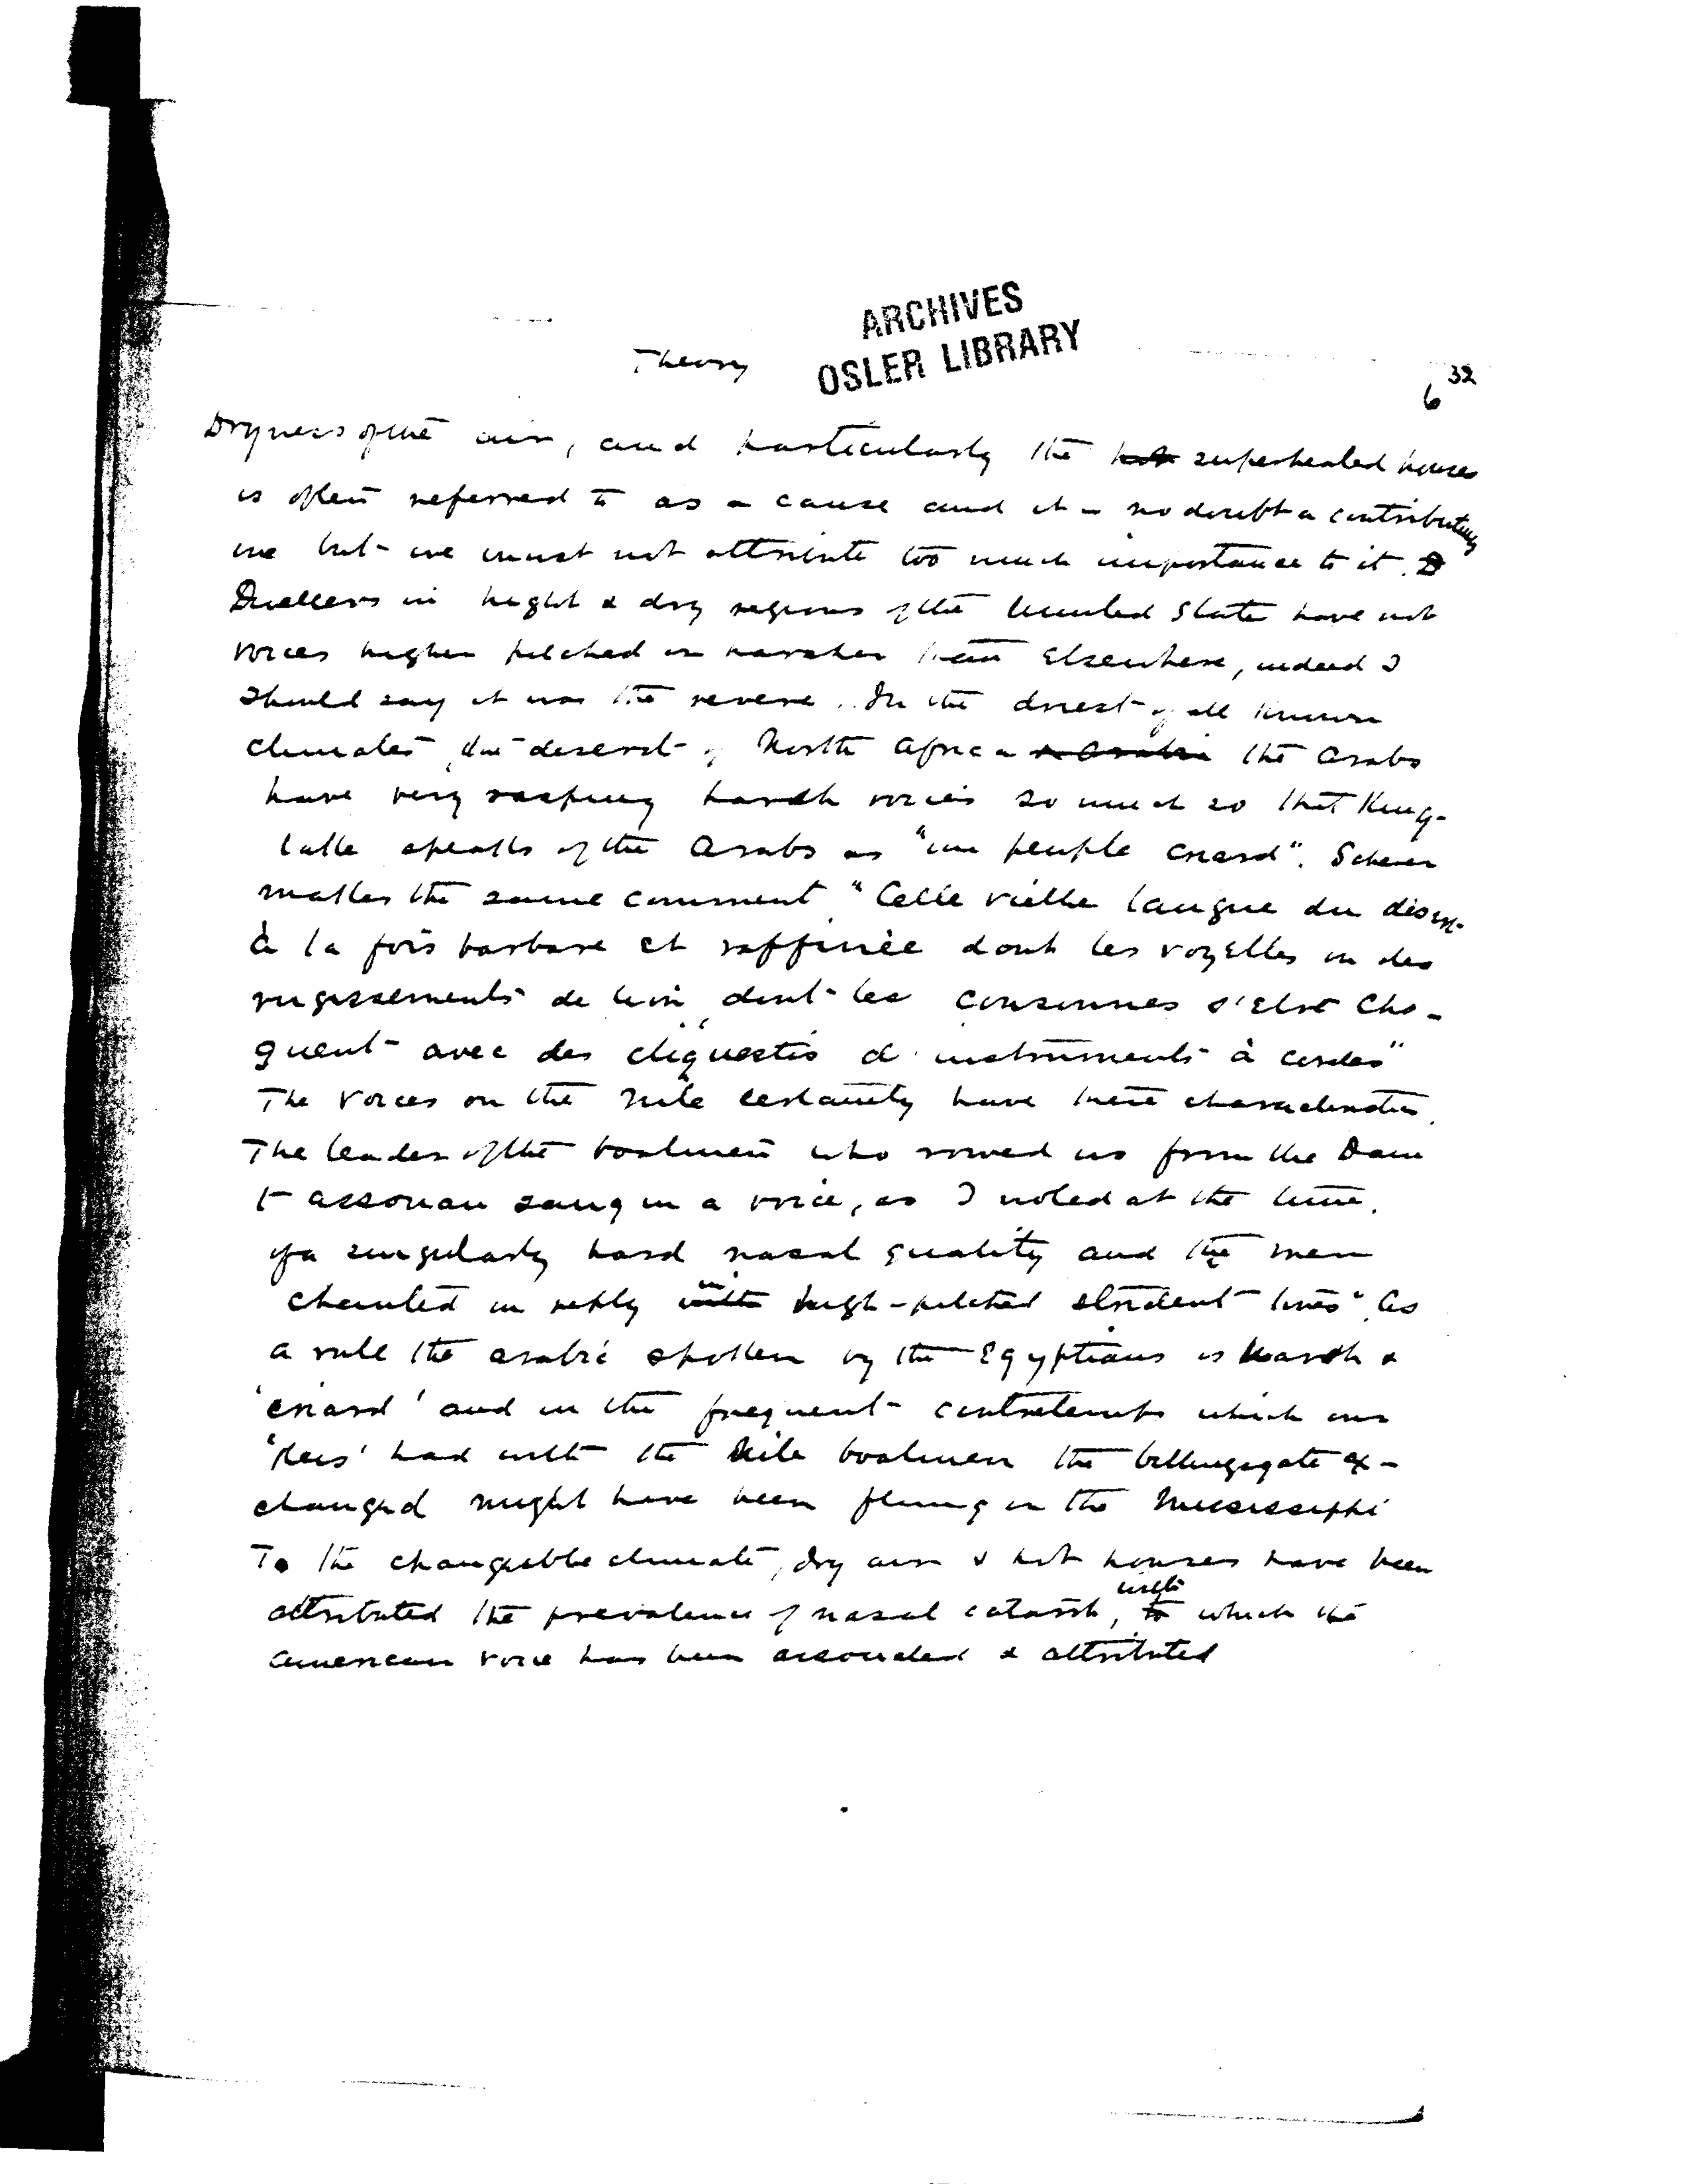 ARCHIVES
OSLER LIBRARY
Theory
32
6
Dryness of the air, and particularly the hot superheated houses
is often referred to as a cause and it is no doubt a contributing
one but we must not attribute too much importance to it. D
Dwellers in hight & dry regions of the United State have not
voices higher pitched or harsher than elsewhere, indeed I
should say it was the reverse. In the driest of all known
climates, the deserst of North Africa & Arabia the Arabs
have very rasping harsh voices so much so that King-
lake speaks of the Arabs as "un peuple criard".
makes the same comment "Cette vielle langue du desert
à la fois barbare et raffinée dont les voyelles on des
rugissements de lion, dont les consonnes s'elve cho-
quent avec des cliquestis d'instruments à cordes"
The voices on the Nile certainly have these characteristics.
The leader of the boatmen who rowed us from the Dam
to Assouan sang in a voice, as I noted at the time,
of a singularly hard nasal quality and the men
chanted in reply with in high-pitched strident tones". As
a rule the arabic spoken by the Egyptians is harsh &
'criard' and in the frequent contretemps which our
'Reis' had with the Nile boatmen the billingsgate ex-
changed might have been flung on the Mississippi
To the changeable climate, dry air & hot houses have been
attributed the prevalence of nasal catarrh, to with which the
American voice has been associated & attributed